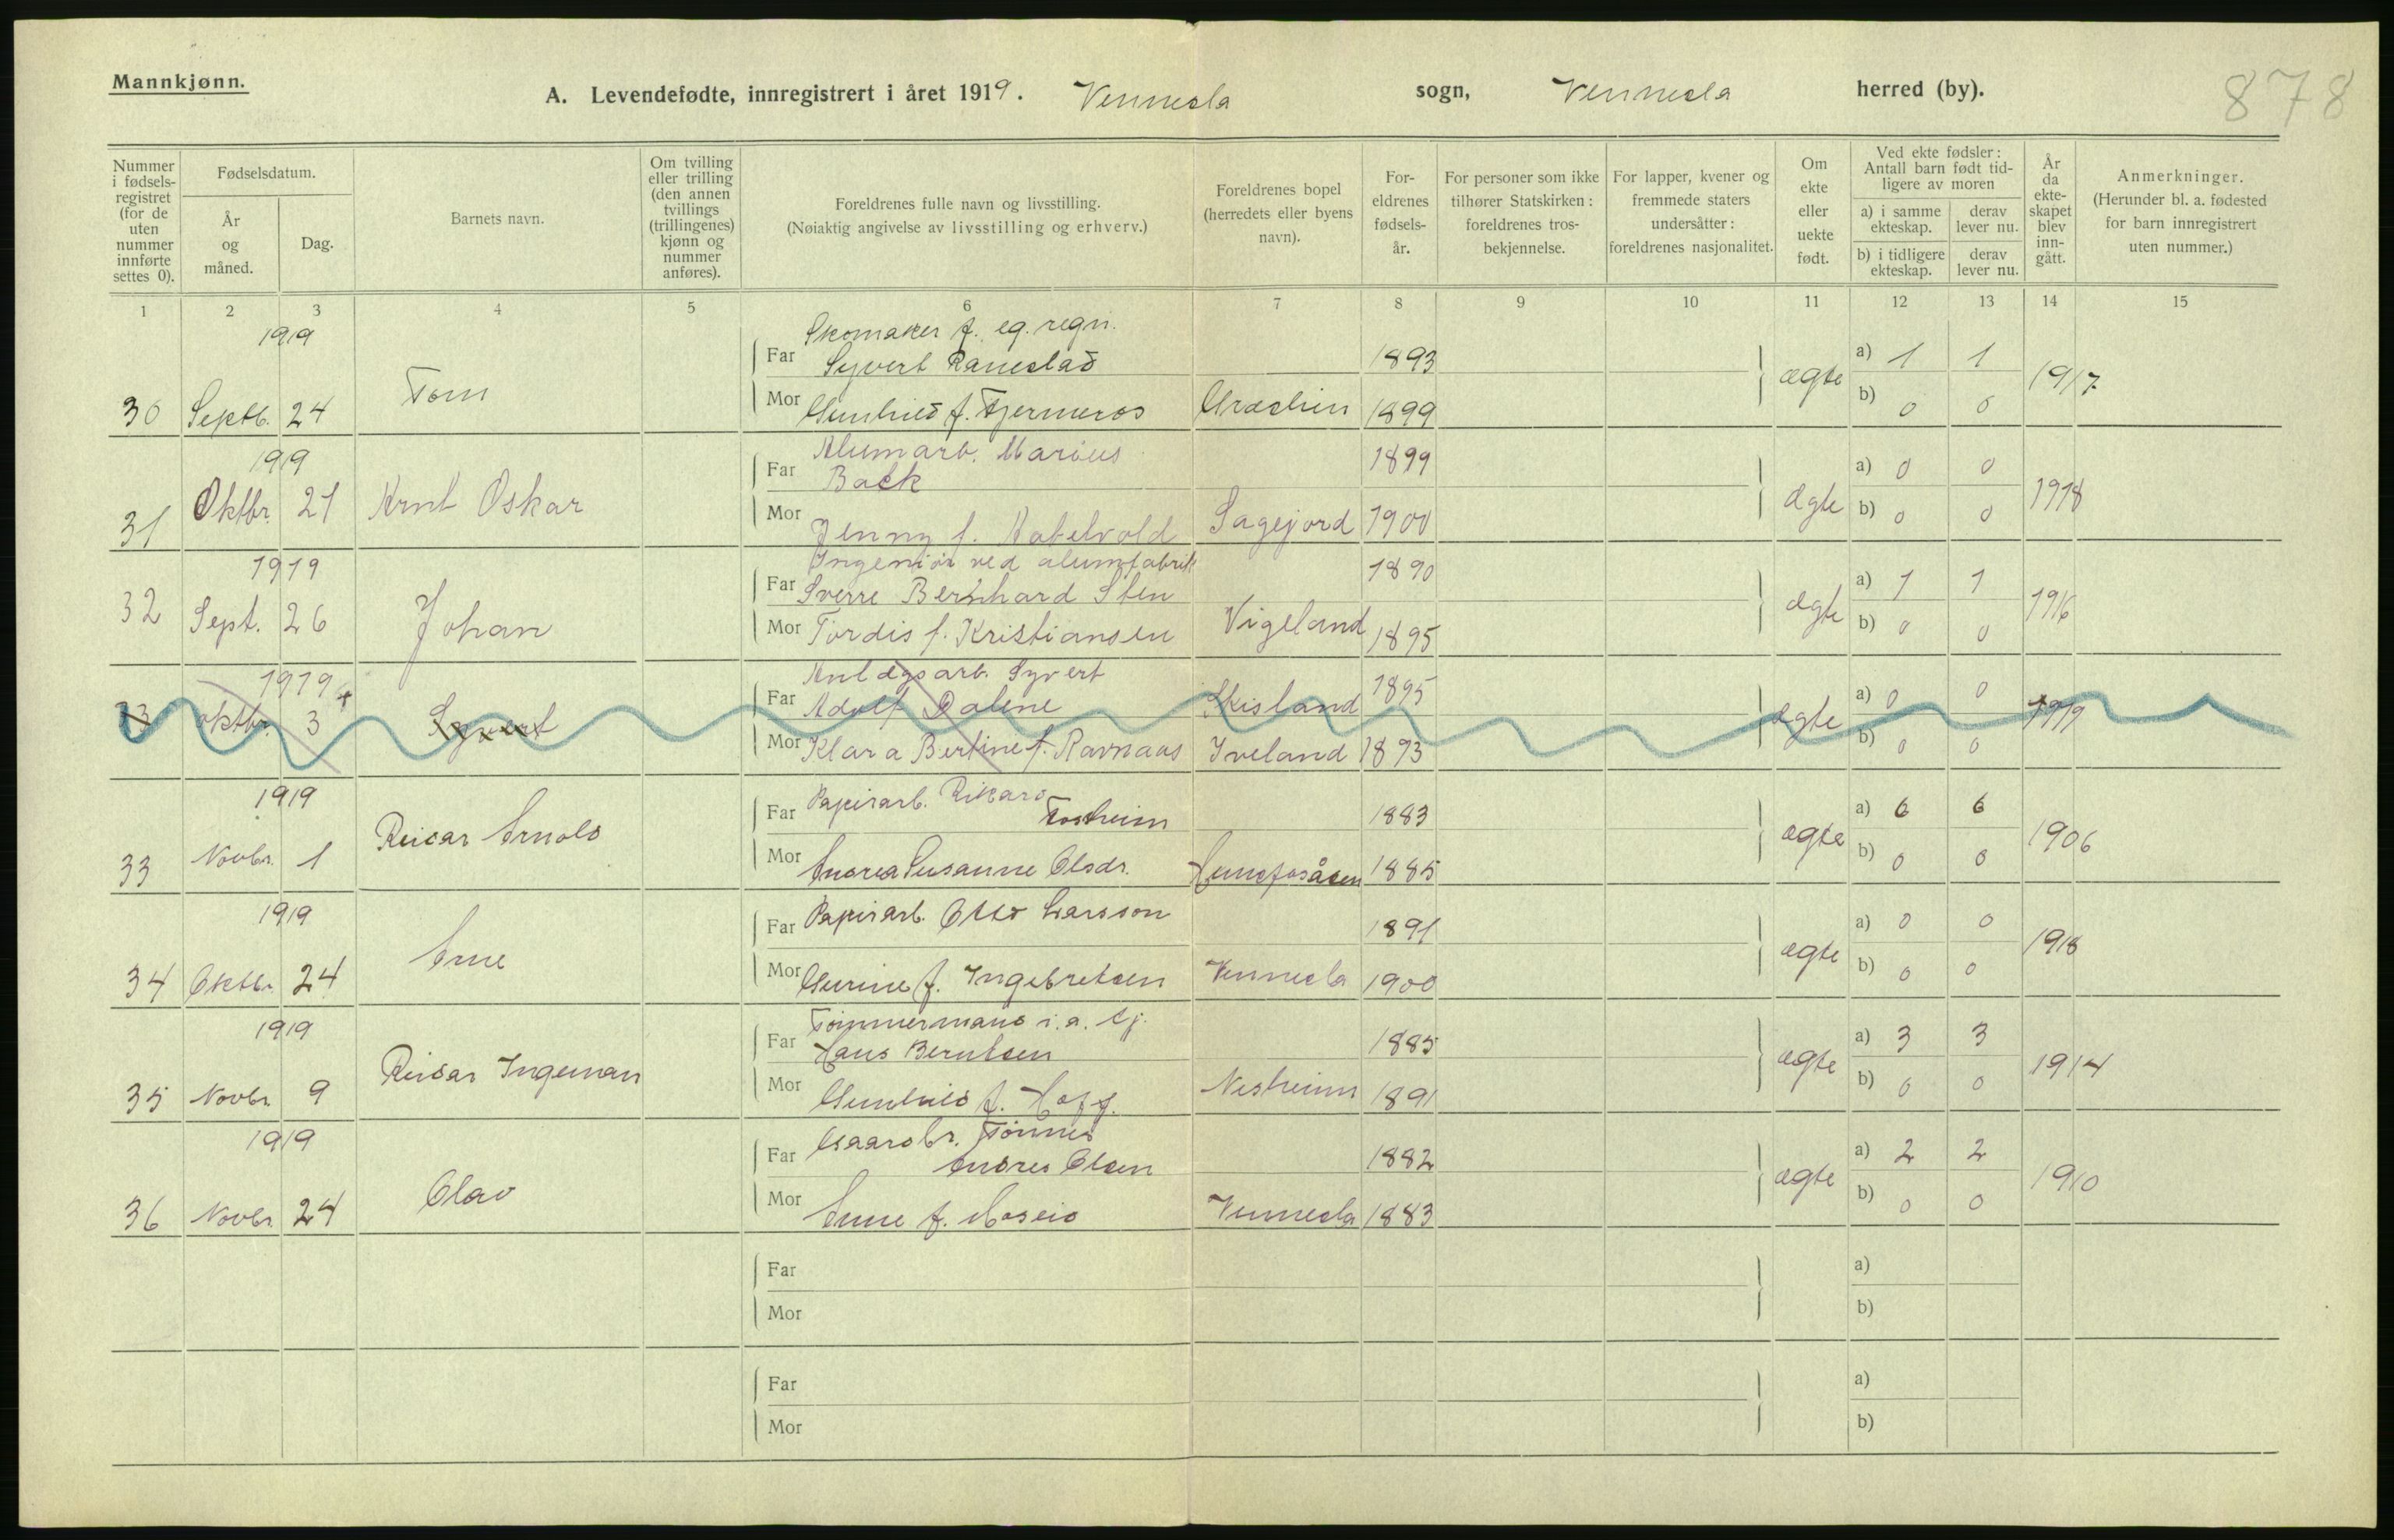 Mannkjønn.
A. Levendefødte, innregistrert i året 1919. Vennesla sogn, Vennesla herred (by).
878
Nummer i fødsels-registret (for de uten nummer innførte settes 0).
Fødselsdatum.
År og måned.
Dag.
Barnets navn.
Om tvilling eller trilling (den annen tvillings (trillingenes) kjønn og nummer anføres).
Foreldrenes fulle navn og livsstilling.
(Nøiaktig angivelse av livsstilling og erhverv.)
Foreldrenes bopel (herredets eller byens navn).
For-eldrenes fødsels-år.
For personer som ikke tilhører Statskirken: foreldrenes tros-bekjennelse.
For lapper, kvener og fremmede staters undersåtter: foreldrenes nasjonalitet.
Om ekte eller uekte født.
Ved ekte fødsler: Antall barn født tid-ligere av moren
a) i samme ekteskap.
derav lever nu.
b) i tidligere ekteskap.
derav lever nu.
År da ekte-skapet blev inn-gått.
Anmerkninger.
(Herunder bl. a. fødested for barn innregistrert uten nummer.)
1 2 3 4 5 6 7 8 9 10 11 12 13 14 15
1919 Skomaker f. eg. regn.
Far Syvert Ranestad 1893 a) 1 1
30 Septb. 24 Tom ægte 1917
Mor Gunhild f. Fjermeros 1899 b) 0 0
1919 Alumarb. Marius
Far Back 1899 a) 0 0
31 Oktbr. 21 Arnt Oskar ægte 1918
Mor Jenny f. Sagejord 1900 b) 0 0
1919 Ingeniør ved alumfabrik
Far Sverre Bernhard Sten 1890 a) 1 1
32 Sept. 26 Johan ægte 1916
Mor Tordis f. Kristiansen Vigeland 1895 b) 0 0
1919 Anlægsarb. Syvert
Far Adolf Dalene Skisland 1895 a) 0 0
33 Oktbr. 3 Syvert ægte 1919
Mor Klara Bertine f. Ravnaas Iveland 1893 b) 0 0
1919 Papirarb. Rikard
Far Tosheim 1883 a) 6 6
33 Novbr. 1 Reidar Arnold ægte 1906
Mor Andrea Susanne Olsdr. Hunsfosåsen 1885 b) 0 0
1919
Far Papirarb. Otto Larsson 1891 a) 0 0
34 Oktbr. 24 Arne ægte 1918
Mor Gurine f. Ingebretsen Vennesla 1900 b) 0 0
1919 Tømmermand i. a. tj.
Far Hans Berntsen 1885 a) 3 3
35 Novbr. 9 Reidar Ingeman ægte 1914
Mor Gunhild f. Nesheim 1891 b) 0 0
1919 Gaardbr. Tønnes
Far Andres Olsen 1882 a) 2 2
36 Novbr. 24 Olav ægte 1910
Mor Anne f. Moseid Vennesla 1883 b) 0 0
Far a)
Mor b)
Far a)
Mor b)